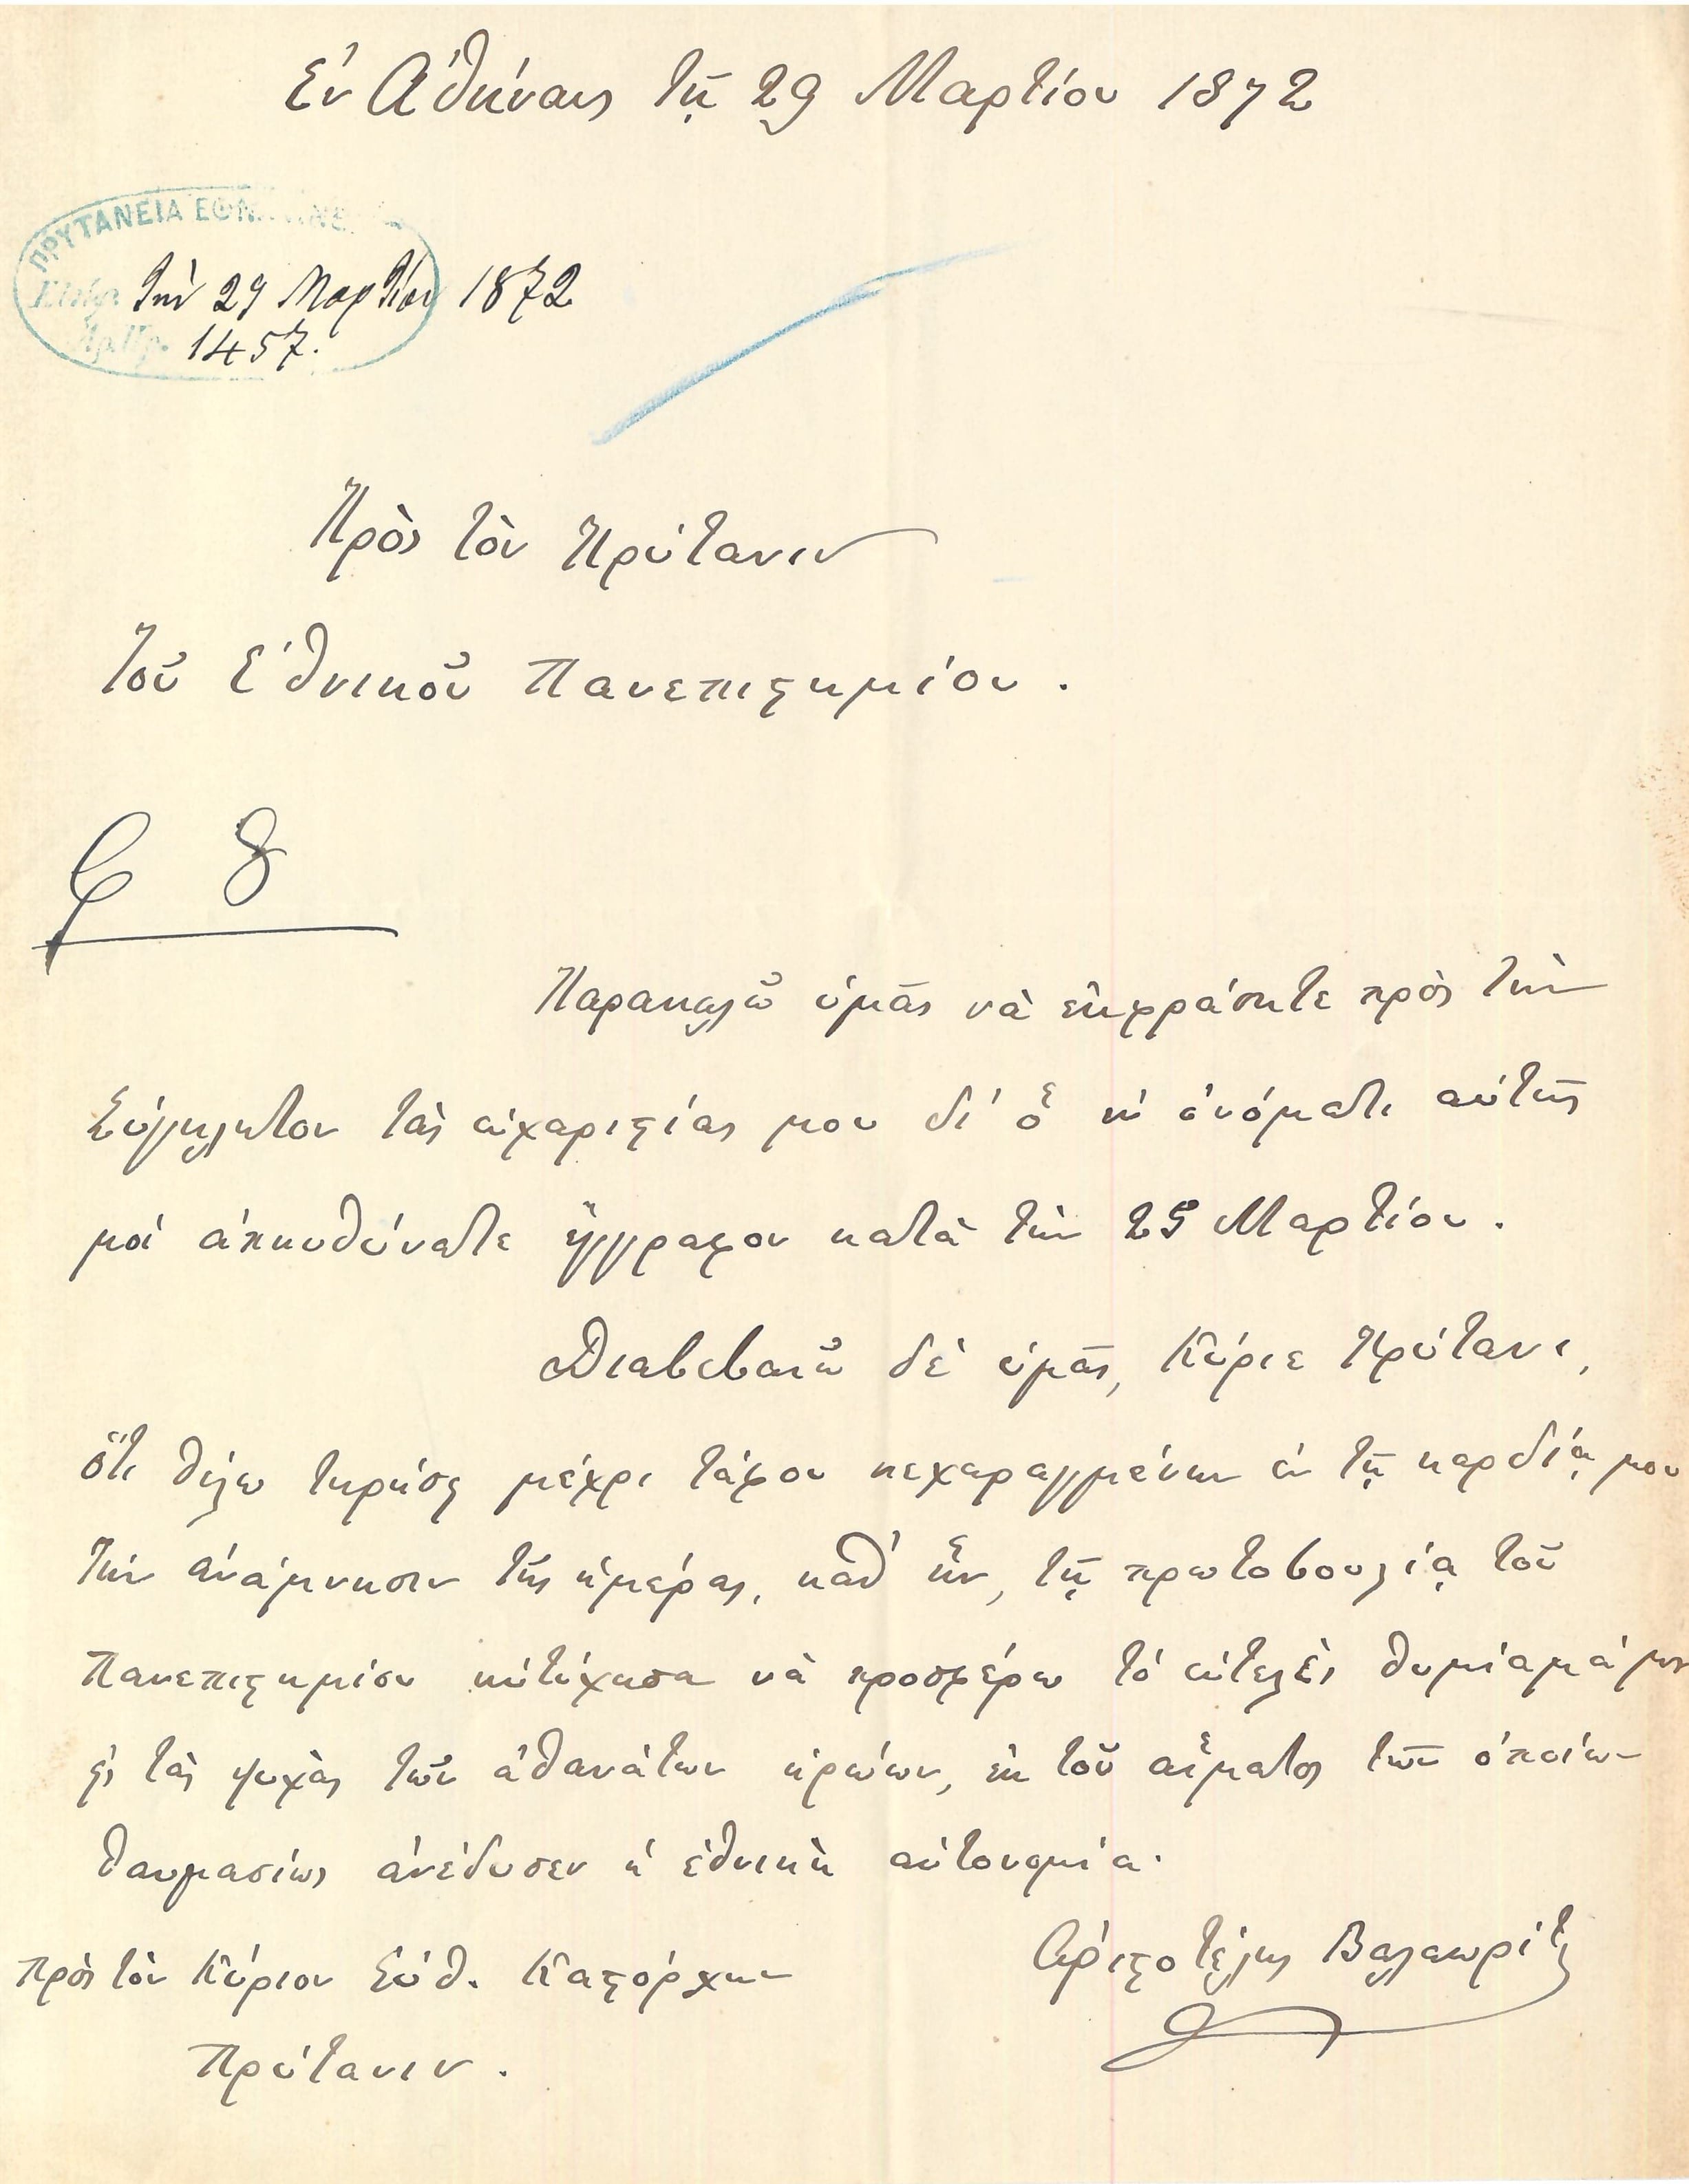 Ἐν Ἀθήναις τῇ 29 Μαρτίου 1872
ΠΡΥΤΑΝΕΙΑ
τὴν 29 Μαρτίου 1872
1457.
Πρὸς τὸν Πρύτανιν
Τοῦ Ἐθνικοῦ Πανεπιςημίου.
8
Παρακαλῶ ὑμᾶς νὰ ἐκφράσητε πρὸς τὴν
Σύγκλητον τὰς εὐχαριςίας μου δι' ὃ ἐν ὀνόματι αὐτῆς
μοὶ ἀπηυθύνατε ἔγγραφον κατὰ τὴν 25 Μαρτίου.
Διαβεβαιῶ δὲ ὑμᾶς, Κύριε Πρύτανι,
ὅτι θέλω τηρήσῃ μέχρι τάφου κεχαραγμένην ἐν τῇ καρδίᾳ μου
τὴν ἀνάμνησιν τῆς ἡμέρας, καθ' ἣν, τῇ πρωτοβουλίᾳ τοῦ
Πανεπιςημίου ηὐτύχησα νὰ προσφέρω τὸ εὐτελὲς θυμίαμά μου
εἰς τὰς ψυχὰς τῶν ἀθανάτων ἡρώων, ἐκ τοῦ αἵματος τῶν ὁποίων
θαυμασίως ἀνέδυσεν ἡ ἐθνικὴ αὐτονομία.
Ἀριςοτέλης Βαλαωρίτης
Πρὸς τὸν Κύριον Εὐθ. Καςόρχην
Πρύτανιν.